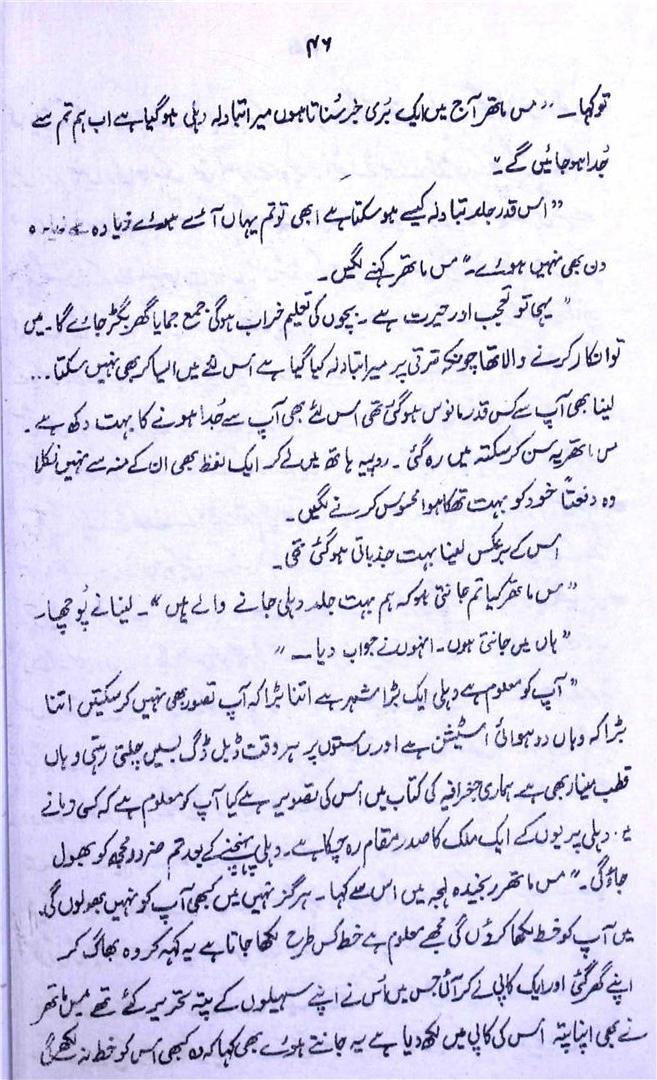 ۴۶
تو کہا۔ ,, مس ماتھر آج میں ایک بُری خبر سُناتا ہوں میرا تبادلہ دہلی ہو گیا ہے اب ہم تم سے
جُدا ہو جائیں گے۔"
"اس قدر جلد تبادلہ کیسے ہو سکتا ہے ابھی تو تم یہاں آئے ہوئے زیادہ
دن بھی نہیں ہوئے۔" مس ماتھر کہنے لگیں۔
"یہی تو تعجب اور حیرت ہے۔ بچوں کی تعلیم خراب ہوگی جمع جمایا گھر بگڑ جائے گا۔ میں
تو انکار کرنے والا تھا چونکہ ترقی پر میرا تبادلہ کیا گیا ہے اس لئے میں ایسا کر بھی نہیں سکتا...
لینا بھی آپ سے کس قدر مانوس ہو گئی تھی اس لئے بھی آپ سے جُدا ہونے کا بہت دکھ ہے۔
مس ماتھر یہ سن کر سکتہ میں رہ گئی۔ روپیہ ہاتھ میں لے کر ایک لفظ بھی ان کے منہ سے نہیں نکلا
وہ دفعتاً خود کو بہت تھکا ہوا محسوس کرنے لگیں۔
اس کے برعکس لینا بہت جذباتی ہو گئی تھی۔
"مس ماتھر کیا تم جانتی ہو کہ ہم بہت جلد دہلی جانے والے ہیں"۔ لینا نے پُوچھا۔
"ہاں میں جانتی ہوں۔ انہوں نے جواب دیا۔"
"آپ کو معلوم ہے دہلی ایک بڑا شہر ہے اتنا بڑا کہ آپ تصور بھی نہیں کر سکتیں اتنا
بڑا کہ وہاں دو ہوائی اسٹیشن ہے اور راستوں پر ہر وقت ڈبل ڈگ بسیں چلتی رہتی وہاں
قطب مینار بھی ہے ہماری جغرافیہ کی کتاب میں اس کی تصویر ہے کیا آپ کو معلوم ہے کہ کسی زمانے
دہلی پریوں کے ایک ملک کا صدر مقام رہ چکا ہے۔ دہلی پہنچنے کے بعد تم ضرور مجھ کو بھول
جاؤ گی۔" مس ماتھر رنجیدہ لہجہ میں اس سے کہا۔ ہرگز نہیں میں کبھی آپ کو نہیں بھولوں گی۔
میں آپ کو خط لکھا کروں گی مجھے معلوم ہے خط کس طرح لکھا جاتا ہے یہ کہہ کر وہ بھاگ کر
اپنے گھر گئی اور ایک کاپی لے کر آئی جس میں اُس نے اپنے سہیلوں کے پتہ تحریر کئے تھے میں ماتھر
نے بھی اپنا پتہ اس کی کاپی میں لکھ دیا ہے یہ جانتے ہوئے بھی کہا کہ وہ کبھی اس کو خط نہ لکھے گی